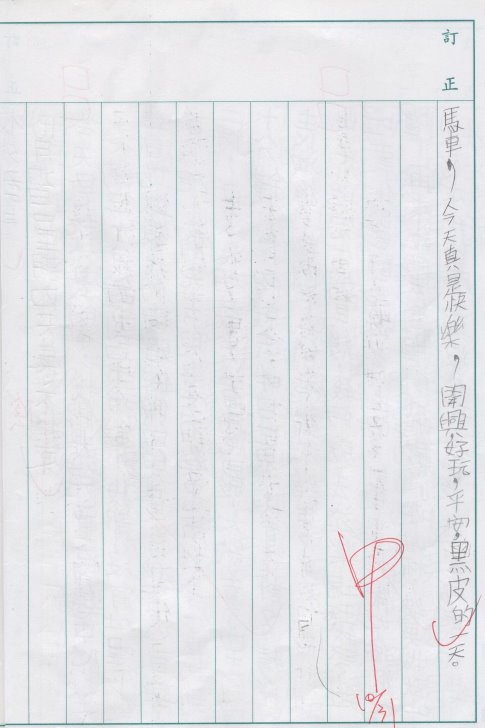 訂正
馬車，今天真是快樂，開興，好玩，平安，黑皮的一天。
甲
10/31